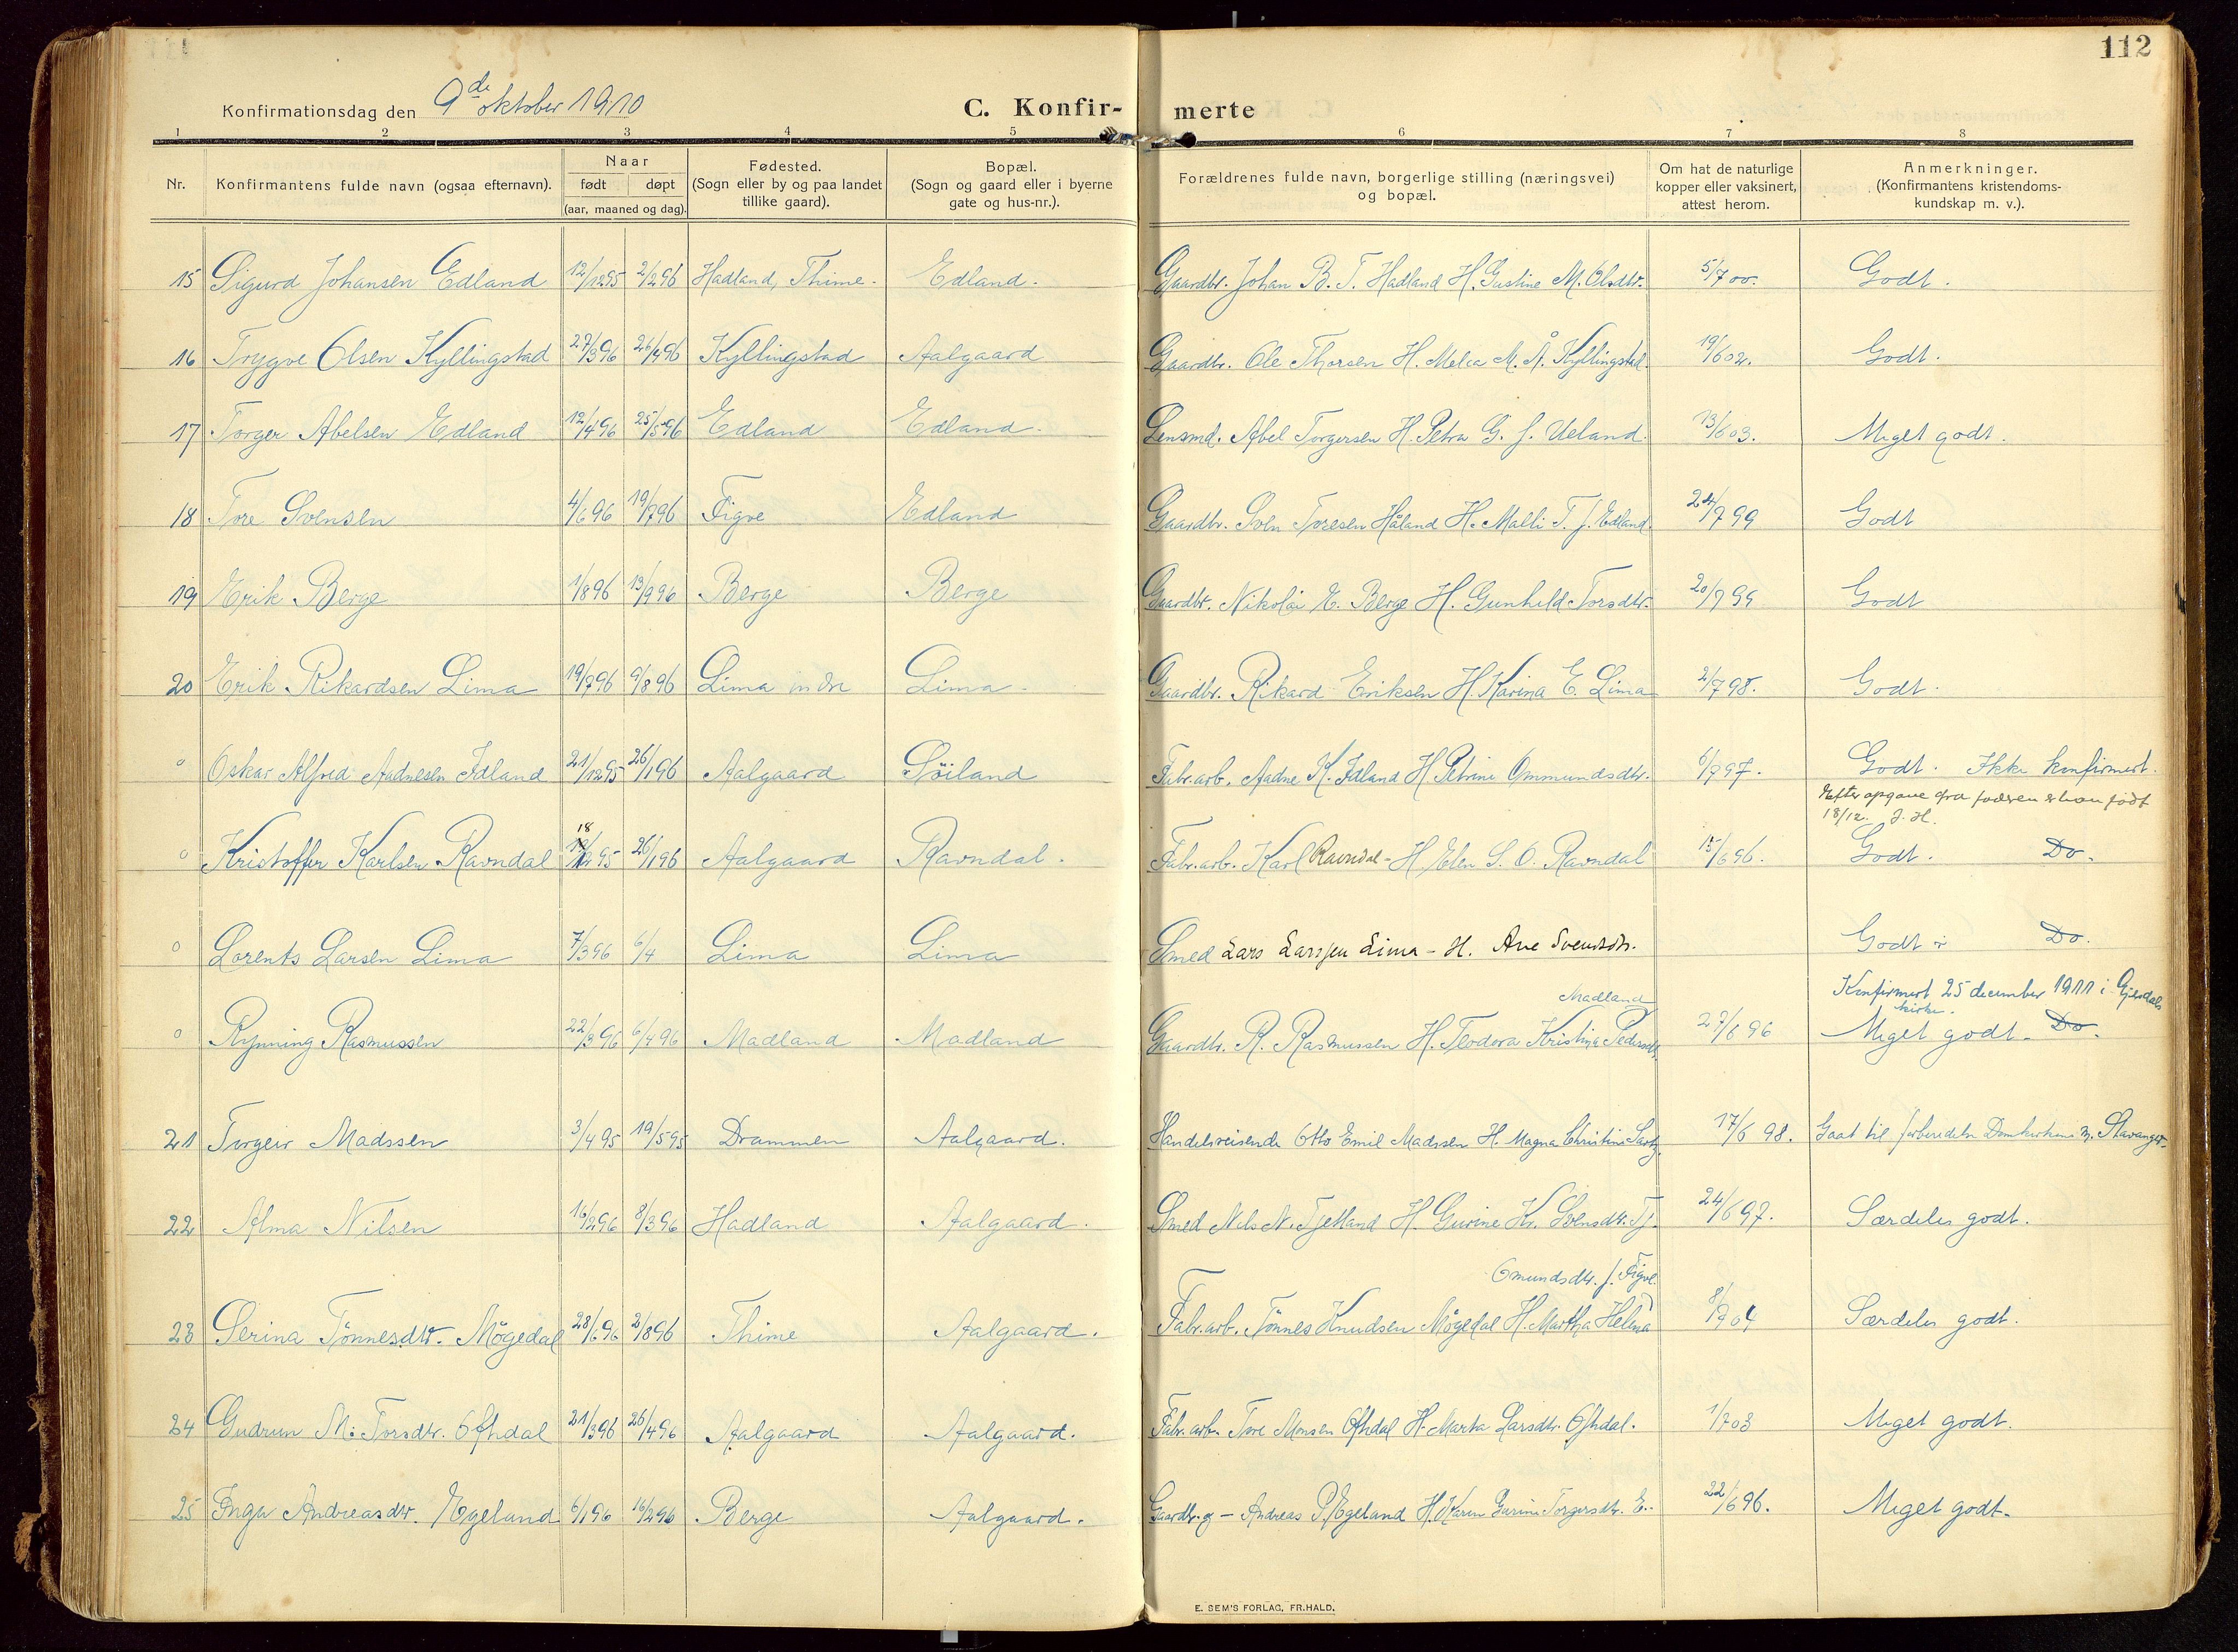 112
Konfirmationsdag den 9de oktober 1910
C. Konfir- merte
1 2 3 4 5 6 7 8
Nr. Konfirmantens fulde navn (ogsaa efternavn). Naar født døpt (aar, maaned og dag). Fødested. (Sogn eller by og paa landet tillike gaard). Bopæl. (Sogn og gaard eller i byerne gate og hus-nr.). Forældrenes fulde navn, borgerlige stilling (næringsvei) og bopæl. Om hat de naturlige kopper eller vaksinert, attest herom. Anmerkninger. (Konfirmantens kristendoms-kundskap m. v.).
15 Sigurd Johansen Edland 12/12 95 2/2 96 Hadland, Thime. Edland. Gaardbr. Johan B. T. Hadland H. Gustine M. Olsdtr. 5/7 00. Godt.
16 Trygve Olsen Kyllingstad 27/3 96 26/4 96 Kyllingstad Aalgaard Gaardbr. Ole Thorsen H. Melca M. Å. Kyllingstad. 19/6 02. Godt.
17 Torger Abelsen Edland 12/4 96 25/5 96 Edland Edland. Lensmd. Abel Torgersen H. Petra G. f. Ueland. 13/6 03. Meget godt.
18 Tore Svensen 4/6 96 19/7 96 Figve Edland Gaardbr. Sven Toresen Håland H. Malli T. f. Edland. 24/7 99 Godt
19 Erik Berge 1/8 96 13/9 96 Berge Berge Gaardbr. Nikolai E. Berge H. Gunhild Torsdtr. 20/7 99 Godt
20 Erik Rikardsen Lima 19/7 96 9/8 96 Lima indre Lima. Gaardbr. Rikard Eriksen H. Karina E. Lima 2/7 98. Godt.
o Oskar Alfred Aadnesen Idland 21/12 95 26/1 96 Aalgaard Søiland Fabr.arb. Aadne K. Idland H. Petrine Ommundsdtr. 6/7 97. Godt. Ikke konfirmert.
Efter opgave fra faderen er han født
18/12. J. H.
o Kristoffer Karlsen Ravndal 18/12 95 26/1 96 Aalgaard Ravndal. Fabr.arb. Karl Ravndal - H. Elen S. O. Ravndal 15/6 96. Godt. Do.
o Lorents Larsen Lima 7/3 96 6/4 Lima Lima Smed Lars Larssen Lima - H. Ane Svendsdtr. Godt Do.
Konfirmert 25 december 1911 i Gjesdals
kirke.
Madland
o Rynning Rasmussen 22/3 96 6/4 96 Madland Madland Gaardbr. R. Rasmussen H. Teodora Kristina Pedersdtr. 27/6 96 Meget godt. Do.
21 Torgeir Madssen 3/4 95 19/5 95 Drammen Aalgaard. Handelsreisende Otto Emil Madssen H. Magna Christine 17/6 98. Gaat til forberedelse Domkirkens m. Stavanger.
22 Alma Nilsen 16/2 96 8/3 96 Hadland Aalgaard. Smed Nils N. Tjetland H. Gurine Kr. Svensdtr. Tj. 24/6 97. Særdeles godt.
Omundsdtr. f. Figve.
23 Serina Tönnesdtr. Mögedal 28/6 96 2/8 96 Thime Aalgaard. Fabr.arb. Tönnes Knudsen Mögedal H. Martha Helena 8/7 04 Særdeles godt.
24 Gudrun M. Torsdtr. Ofthdal 21/3 96 26/4 96 Aalgaard Aalgaard. Fabr.arb. Tore Monsen Ofthdal H. Marta Larsdtr. Ofthdal. 1/7 03 Meget godt.
25 Inga Andreasdtr. Egeland 6/1 96 16/2 96 Berge Aalgaard. Gaardbr. g - Andreas P. Egeland H. Karen Gurine Torgersdtr. E.. 22/6 96. Meget godt.
E. SEM'S FORLAG, FR.HALD.